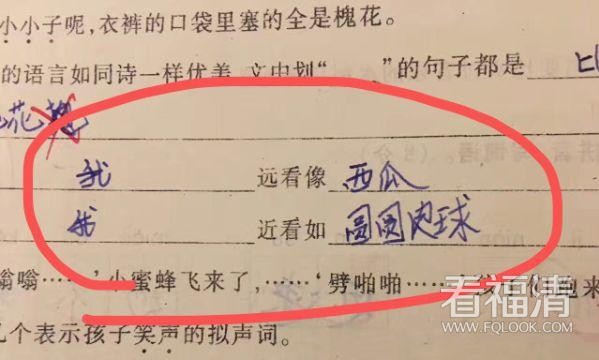 小小子呢,衣裤的口袋里塞的全是槐花。
的语言如同诗一样优美,文中划“____”的句子都是 比
花
我 远看像 西瓜
我 近看如 圆圆肉球
嗡嗡……’小蜜蜂飞来了,……‘劈啪啪……
几个表示孩子笑声的拟声词。
看福清
WWW.FQLOOK.COM